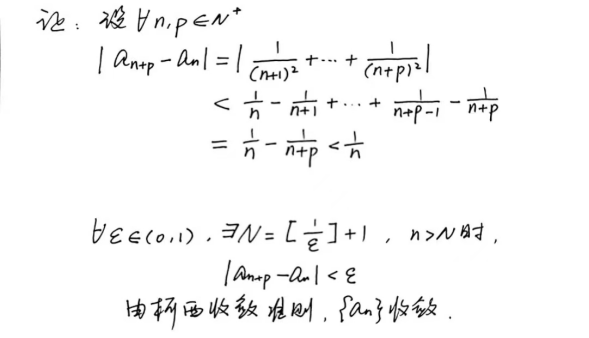 证：设 ∀n,p∈N⁺
|aₙ₊ₚ - aₙ| = |1/(n+1)² + ··· + 1/(n+p)²|
< 1/n - 1/(n+1) + ··· + 1/(n+p-1) - 1/(n+p)
= 1/n - 1/(n+p) < 1/n
∀ε∈(0,1)，∃N=[1/ε]+1，n>N时，
|aₙ₊ₚ - aₙ| < ε
由柯西收敛准则，{aₙ}收敛．